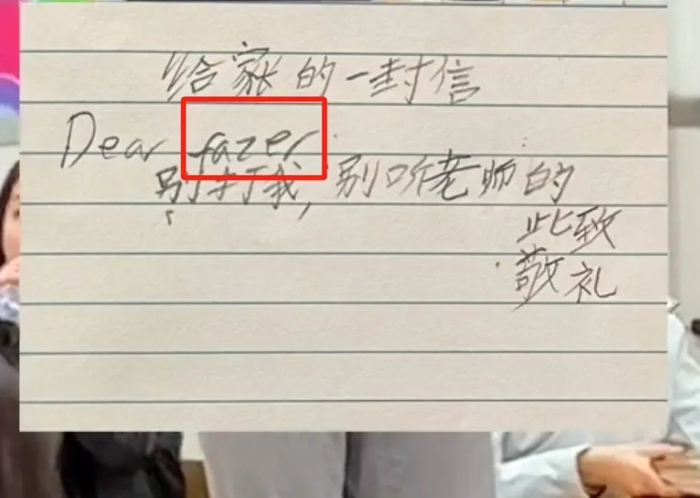 给家长的一封信
Dear fazer.
别打我，别听老师的
此致
敬礼